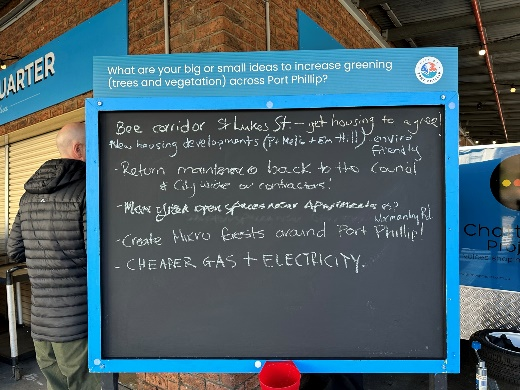 UARTER
What are your big or small ideas to increase greening
(trees and vegetation) across Port Phillip?
Bee corridor St Lukes St. - get housing to agree!
New housing developments (Pt Melb + Em Hill) enviro
friendly
- Return maintenance back to the Council
& City wide or contractors!
- More green open spaces near Apartments eg?
Normanby Rd.
- Create Micro forests around Port Phillip!
- CHEAPER GAS + ELECTRICITY.